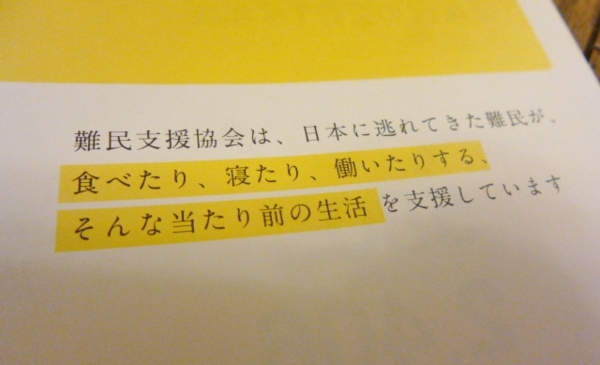 難民支援協会は、日本に逃れてきた難民が、
食べたり、寝たり、働いたりする、
そんな当たり前の生活を支援しています